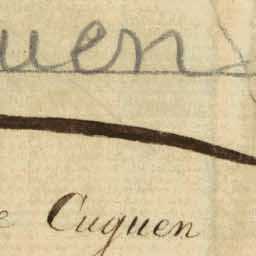 uen
e Cuguen